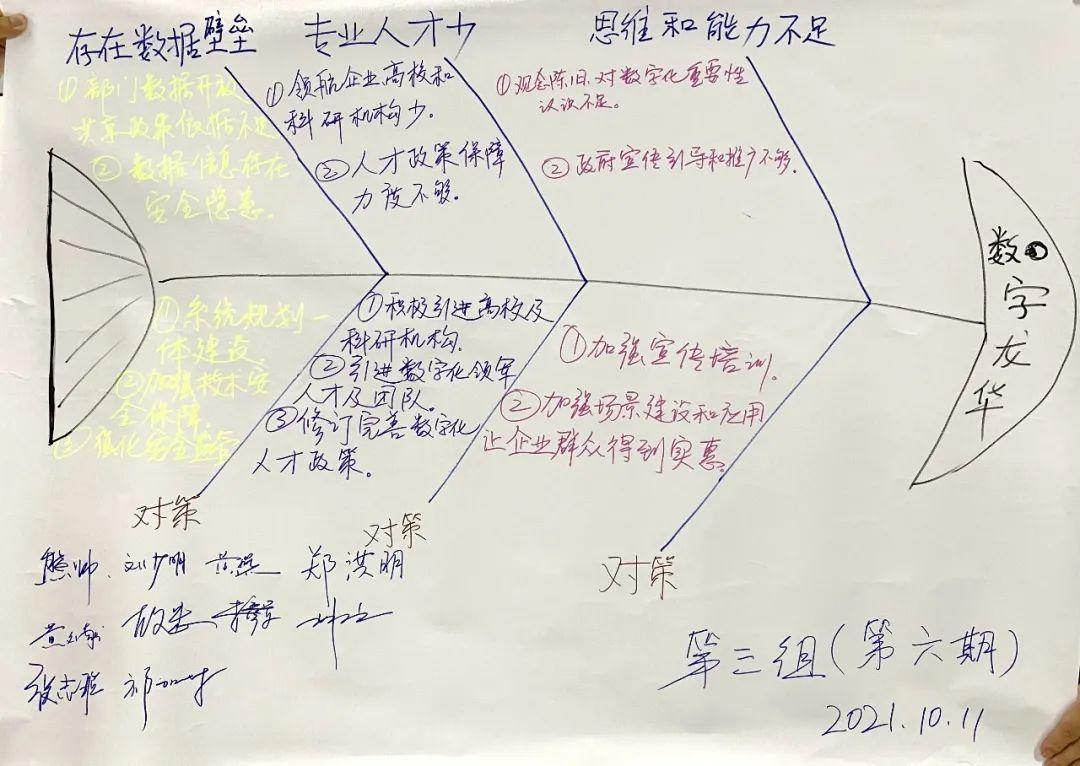 存在数据壁垒
①部门数据开放
共享政策依据不足
②数据信息存在
安全隐患.
专业人才少
①领航企业高校和
科研机构少.
②人才政策保障
力度不够.
思维和能力不足
①观念陈旧.对数字化重要性
认识不足。
②政府宣传引导和推广不够.
数字龙华
①系统规划一
体建设.
②加强技术安
全保障.
③强化安全监管
对策
①积极引进高校及
科研机构.
②引进数字化领军
人才及团队。
③修订完善数字化
人才政策。
对策
①加强宣传培训.
②加强场景建设和应用
让企业群众得到实惠.
对策
熊帅. 刘少明 郑洪明
张志强
第三组(第六期)
2021.10.11